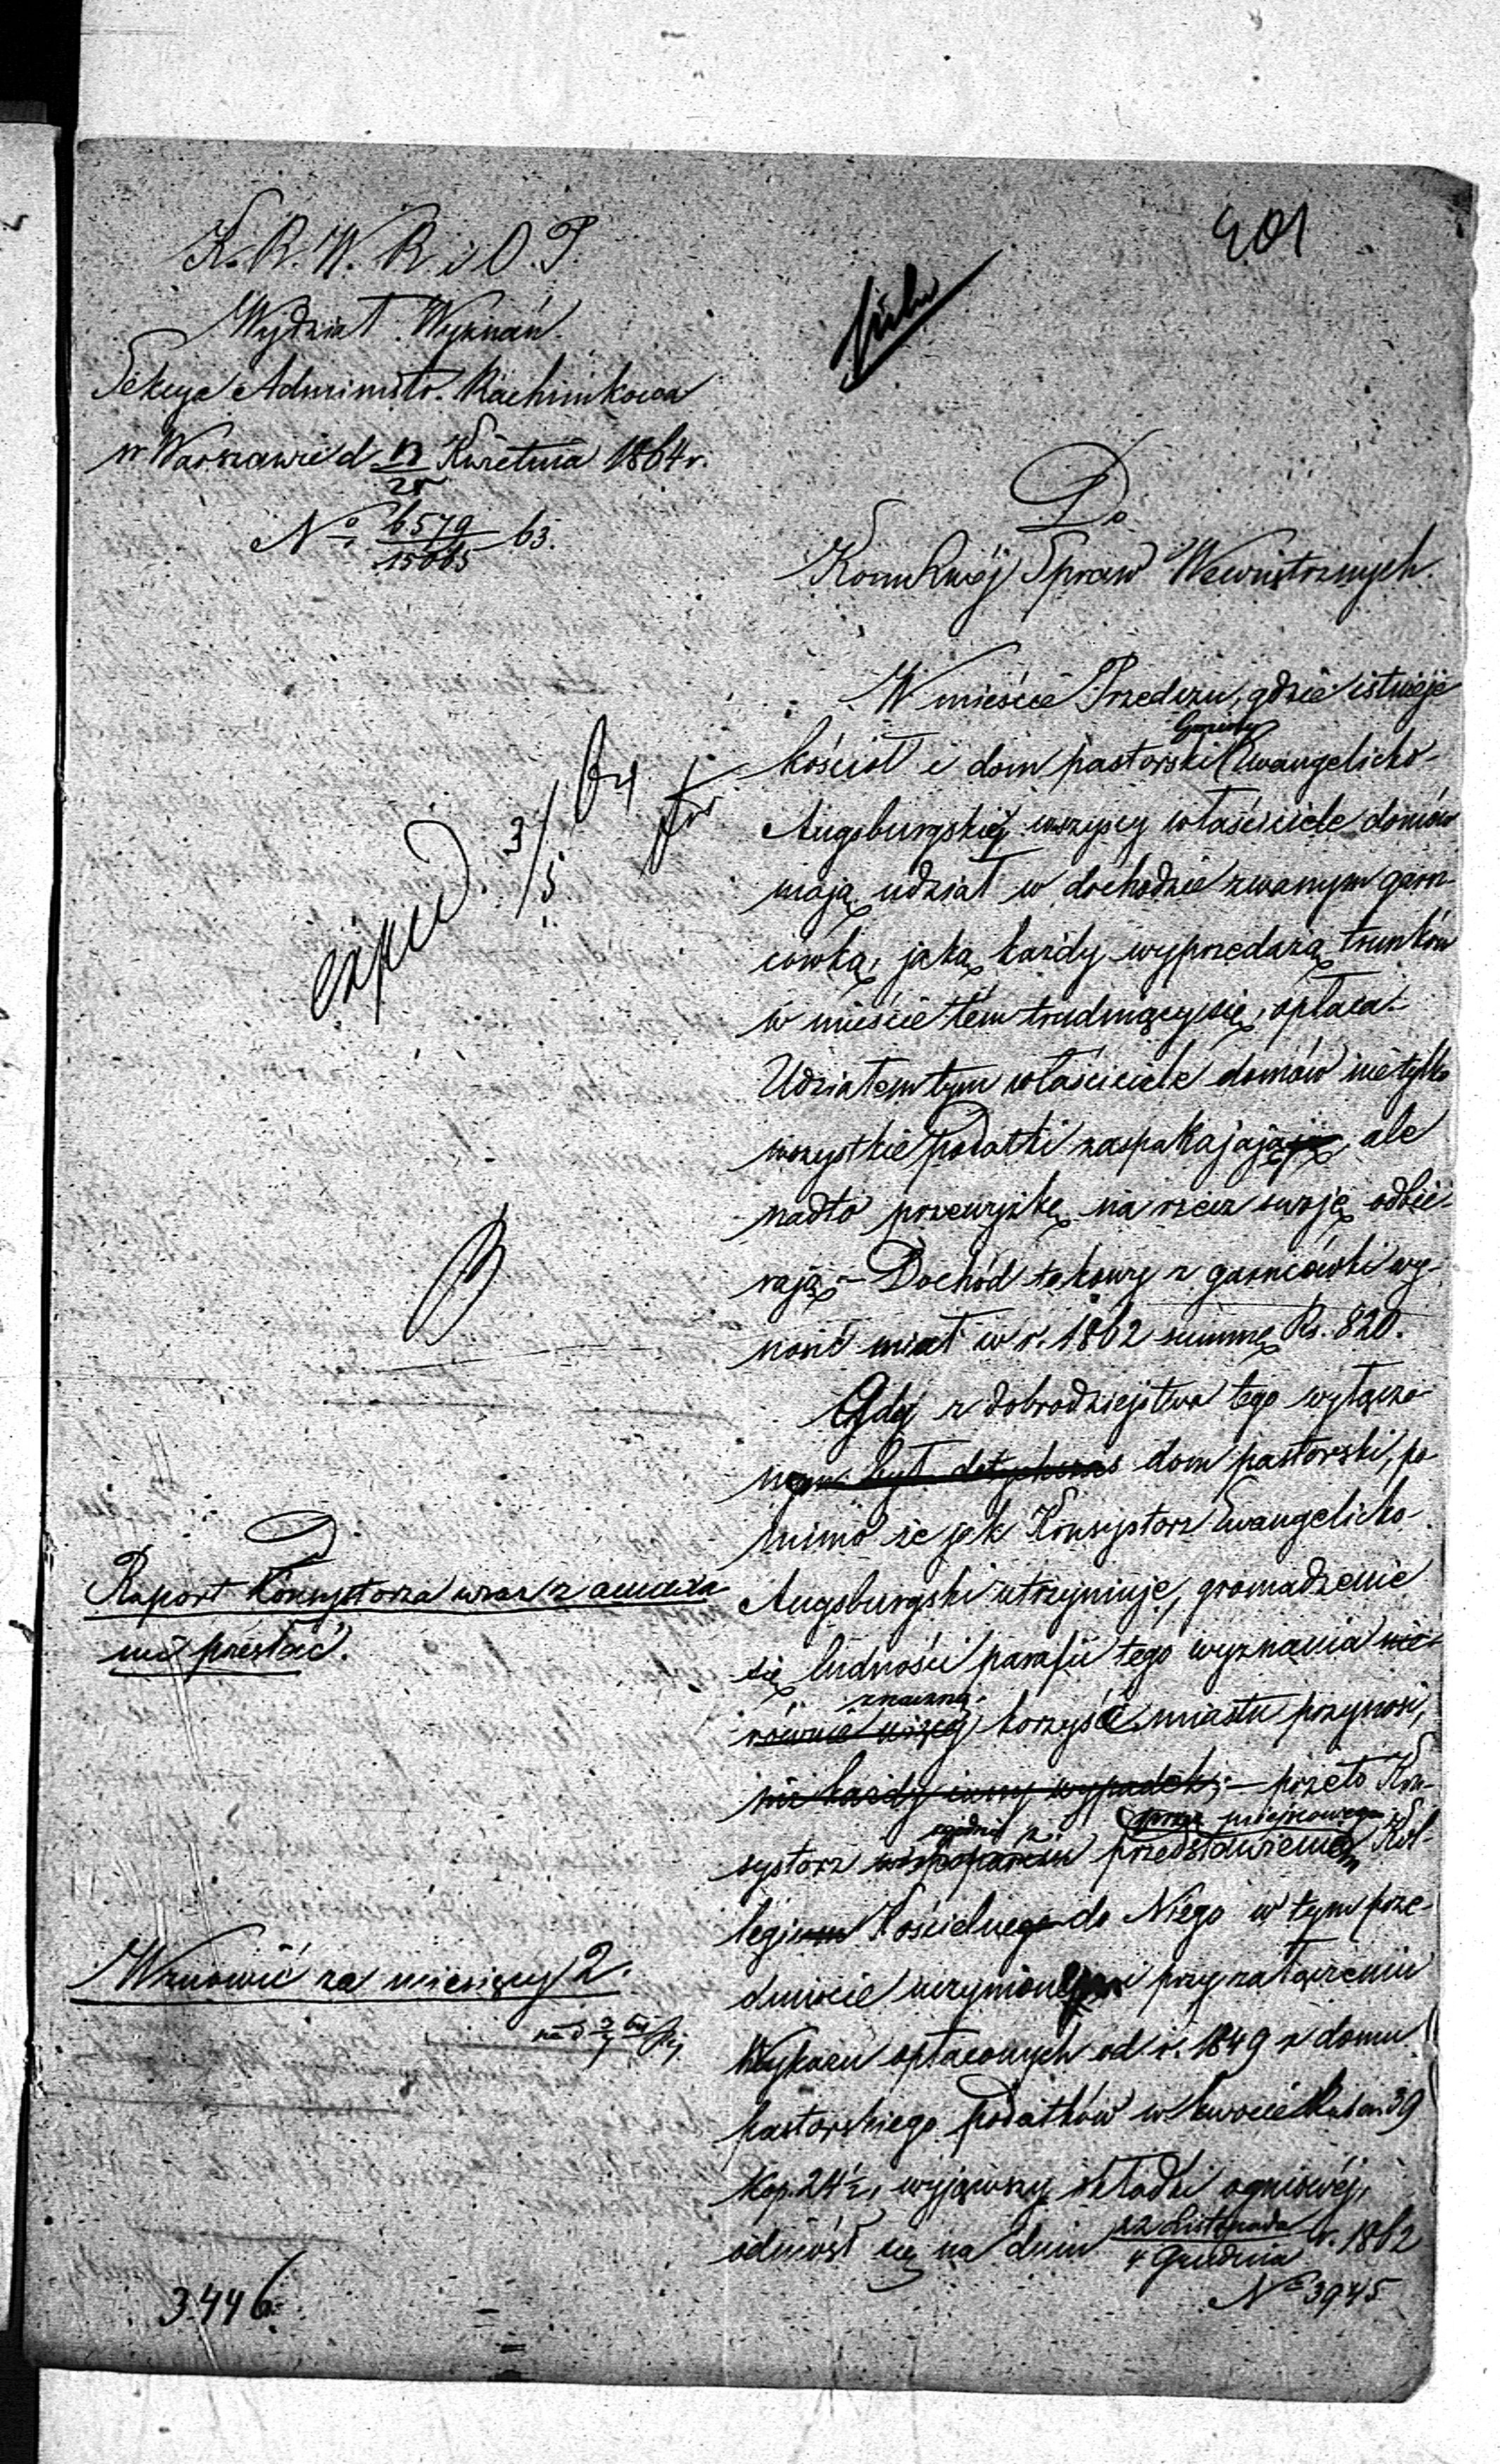 401
K. R. W. R. i O. P.
Wydział Wyznań.
Sekcya Administr. Rachunkowa
w Warszawie d 13/25 Kwietnia 1864 r.
No 6579/15665 63.
Do
Kom Rwéj Spraw Wewnętrznych.
W mieście Przedczu, gdzie istnieje
kościół i dom pastorski Gminy Ewangelicko-
Augsburgskiéj wszyscy właściciele domów
mają udział w dochodzie zwanym garn-
cówką, jaką każdy wyprzedażą trunków
w mieście tém trudniący się, opłaca.
Udziałem tym właściciele domów nietylko
wszystkie podatki zaspakajają, ale
nadto przewyżkę na rzecz swoję odbie-
rają. – Dochód takowy z garncówki wy-
nosić miał w r. 1862 summę Rs. 820.
Gdy z dobrodziejstwa tego wyłączo-
nym był dotychczas dom pastorski, po-
mimo że jak Konsystorz Ewangelicko-
Augsburgski utrzymuje, gromadzenie
się ludności parafii tego wyznania nie-
znaczną
równie więcej korzyść miastu przynosi,
niż każdy inny wypadek; – przeto Kon-
zgodnie z miejscowego
systorz przedstawieniem Kol-
legium Kościelnego do Niego w tym prze-
dmiocie uczynionym i przy załączeniu
Wykazu opłaconych od r. 1849 z domu
pastorskiego podatków w kwocie Rubsr. 39
kop. 24½, wyjąwszy składki ogniowéj,
odniósł się na dniu 22 Listopada/4 Grudnia r. 1862
No 3945
exped. 3/5 64
Raport Konsystorza wraz z annexa
mi przesłać.
Wznowić za miesięcy 2.
3446